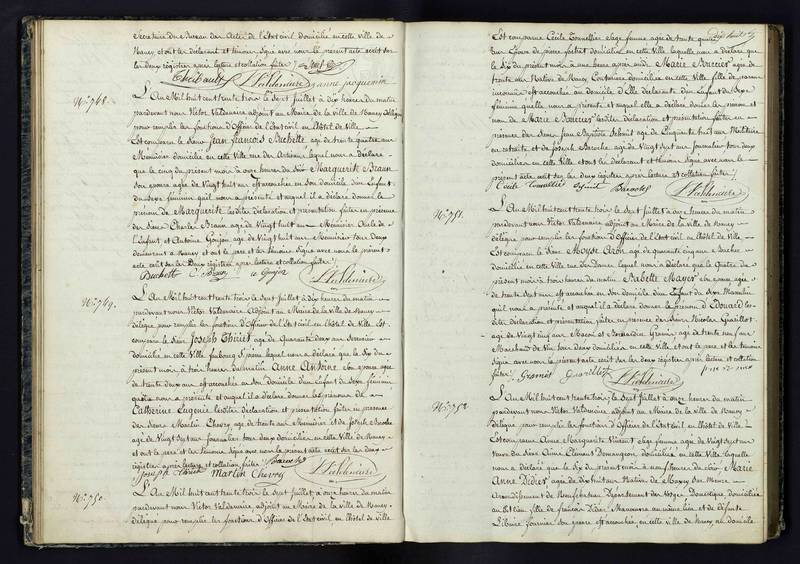 Secretaire du Bureau des Actes de l'Etat civil domicilié en cette ville de
Nancy et ont les declarant et témoins signé avec nous le present acte ecrit sur
les deux registres après lecture et collation faites
Thiébault Jeanne Jacquemin
N° 748.
L'An Mil huit cent trente trois le Sept Juillet à dix heures du matin
pardevant nous Victor Valdenaire adjoint au Maire de la ville de Nancy délégué
pour remplir les fonctions d'Officier de l'Etat civil en l'hôtel de Ville
Est comparu le Sieur Jean François Buchette agé de trente quatre ans
Menuisier domicilié en cette ville rue des lequel nous a déclaré
que le cinq du present mois à onze heures du Soir Marguerite Braun
Son epouse agée de Vingt huit ans est accouchée en Son domicile d'un Enfant
du Sexe féminin qu'il nous a presenté et auquel il a déclaré donner le
prenom de Marguerite lesdites declaration et présentation faites en présence
des Sieurs Charles Braun agé de Vingt huit ans Menuisier Oncle de
l'enfant et Antoine Goujon agé de Vingt huit ans Menuisier tous deux
demeurant à Nancy et ont le pere et les témoins Signé avec nous le présent
acte ecrit sur les Deux registres après lecture et collation faites
Buchette C. Braun a Goujon
N° 749.
L'An Mil huit cent trente trois le Sept Juillet à dix heures du matin
pardevant nous Victor Valdenaire Adjoint au Maire de la ville de Nancy
délégué pour remplir les fonctions d'Officier de l'Etat civil en l'hôtel de Ville Est
comparu le Sieur Joseph Thiriet agé de Quarante deux ans Serrurier
domicilié en cette ville faubourg St pierre lequel nous a déclaré que le Six du
present mois, à trois heures du matin Anne Antoine Son epouse agée
de trente deux ans est accouchée en Son domicile d'un Enfant du Sexe féminin
qu'il nous a presenté et auquel il a déclaré donner les prenoms de
Catherine Eugenie lesdites déclaration et présentation faites en présence
des Sieurs Martin Chevry agé de trente ans Menuisier et de Joseph Baroche
agé de Vingt Sept ans Journalier tous deux domiciliés en cette ville de Nancy
et ont le pere et les témoins Signé avec nous le present acte ecrit sur les deux
registres après lecture et collation faites Baroche
Joseph Thiriet Martin Chevry
N° 750.
L'An Mil huit cent trente trois le Sept Juillet à onze heures du matin
pardevant nous Victor Valdenaire, adjoint au Maire de la ville de Nancy
délégué pour remplir les fonctions d'Officier de l'Etat civil en l'hôtel de Ville
Est comparue Cécile Tonnellier Sage femme agée de trente quatre
ans Epouse de pierre domiciliée en cette ville laquelle nous a déclaré que
le Six du présent mois à une heure après midi Marie Briccies agée de
trente ans Native de Nancy Couturiere domiciliée en cette Ville fille de parens
inconnus est accouchée au domicile d'Elle déclarante d'un Enfant du Sexe
féminin quelle nous a présenté et auquel elle a déclaré donner le prenom et
nom de Marie Briccies lesdites déclaration et présentation faites en
présence des Sieurs Jean Baptiste Schmit agé de Cinquante huit ans Militaire
en retraite et de Joseph Baroche agé de Vingt Sept ans Journalier tous deux
domiciliés en cette Ville et ont les declarant et témoins Signé avec nous le
present acte ecrit sur les deux registres après lecture et collation faites
Cécile Tonnellier Schmit Baroche
N° 751.
L'An Mil huit cent trente trois le Sept Juillet à onze heures du matin
pardevant nous Victor Valdenaire adjoint au Maire de la ville de Nancy
délégué pour remplir les fonctions d'Officier de l'Etat civil en l'hôtel de Ville
Est comparu le Sieur Moyse Aron agé de Quarante cinq ans Boucher
domicilié en cette Ville rue des Dames lequel nous a Déclaré que le Quatre du
présent mois à trois heures du matin Babette Mayer Son epouse agée
de trente Sept ans est accouchée en Son domicile d'un Enfant du Sexe Masculin
qu'il nous a presenté, et auquel il a déclaré donner le prenom d'Edouard les
dites déclaration et présentation faites en présence des Sieurs Nicolas Gazillot
agé de Vingt cinq ans Maçon et Bernardin Gremin agé de trente neuf ans
Marchand de Vin tous deux domiciliés en cette Ville et ont le pere et les témoins
Signé avec nous le présent acte ecrit sur les deux registres après lecture et collation
faites Gazillot
N° 752.
L'An Mil huit cent trente trois le Sept Juillet à onze heures du matin
pardevant nous Victor Valdenaire adjoint au Maire de la ville de Nancy
délégué pour remplir les fonctions d'Officier de l'Etat civil en l'hôtel de Ville
Est comparue Anne Marguerite Vincent Sage femme agée de Vingt Sept ans
Veuve du Sieur Aimé Clement Domangeon domiciliée en cette Ville laquelle
nous a déclaré que le Six du present mois à neuf heures du Soir Marie
Anne Didier agée de dix huit ans Native de sur Meuse
Arrondissement de Neufchateau Département des Vosges Domestique, domiciliée
au dit lieu fille de françois Didier Manoeuvre au même lieu et de défunte
Libaire fournier Son epouse est accouchée, en cette ville de Nancy au domicile